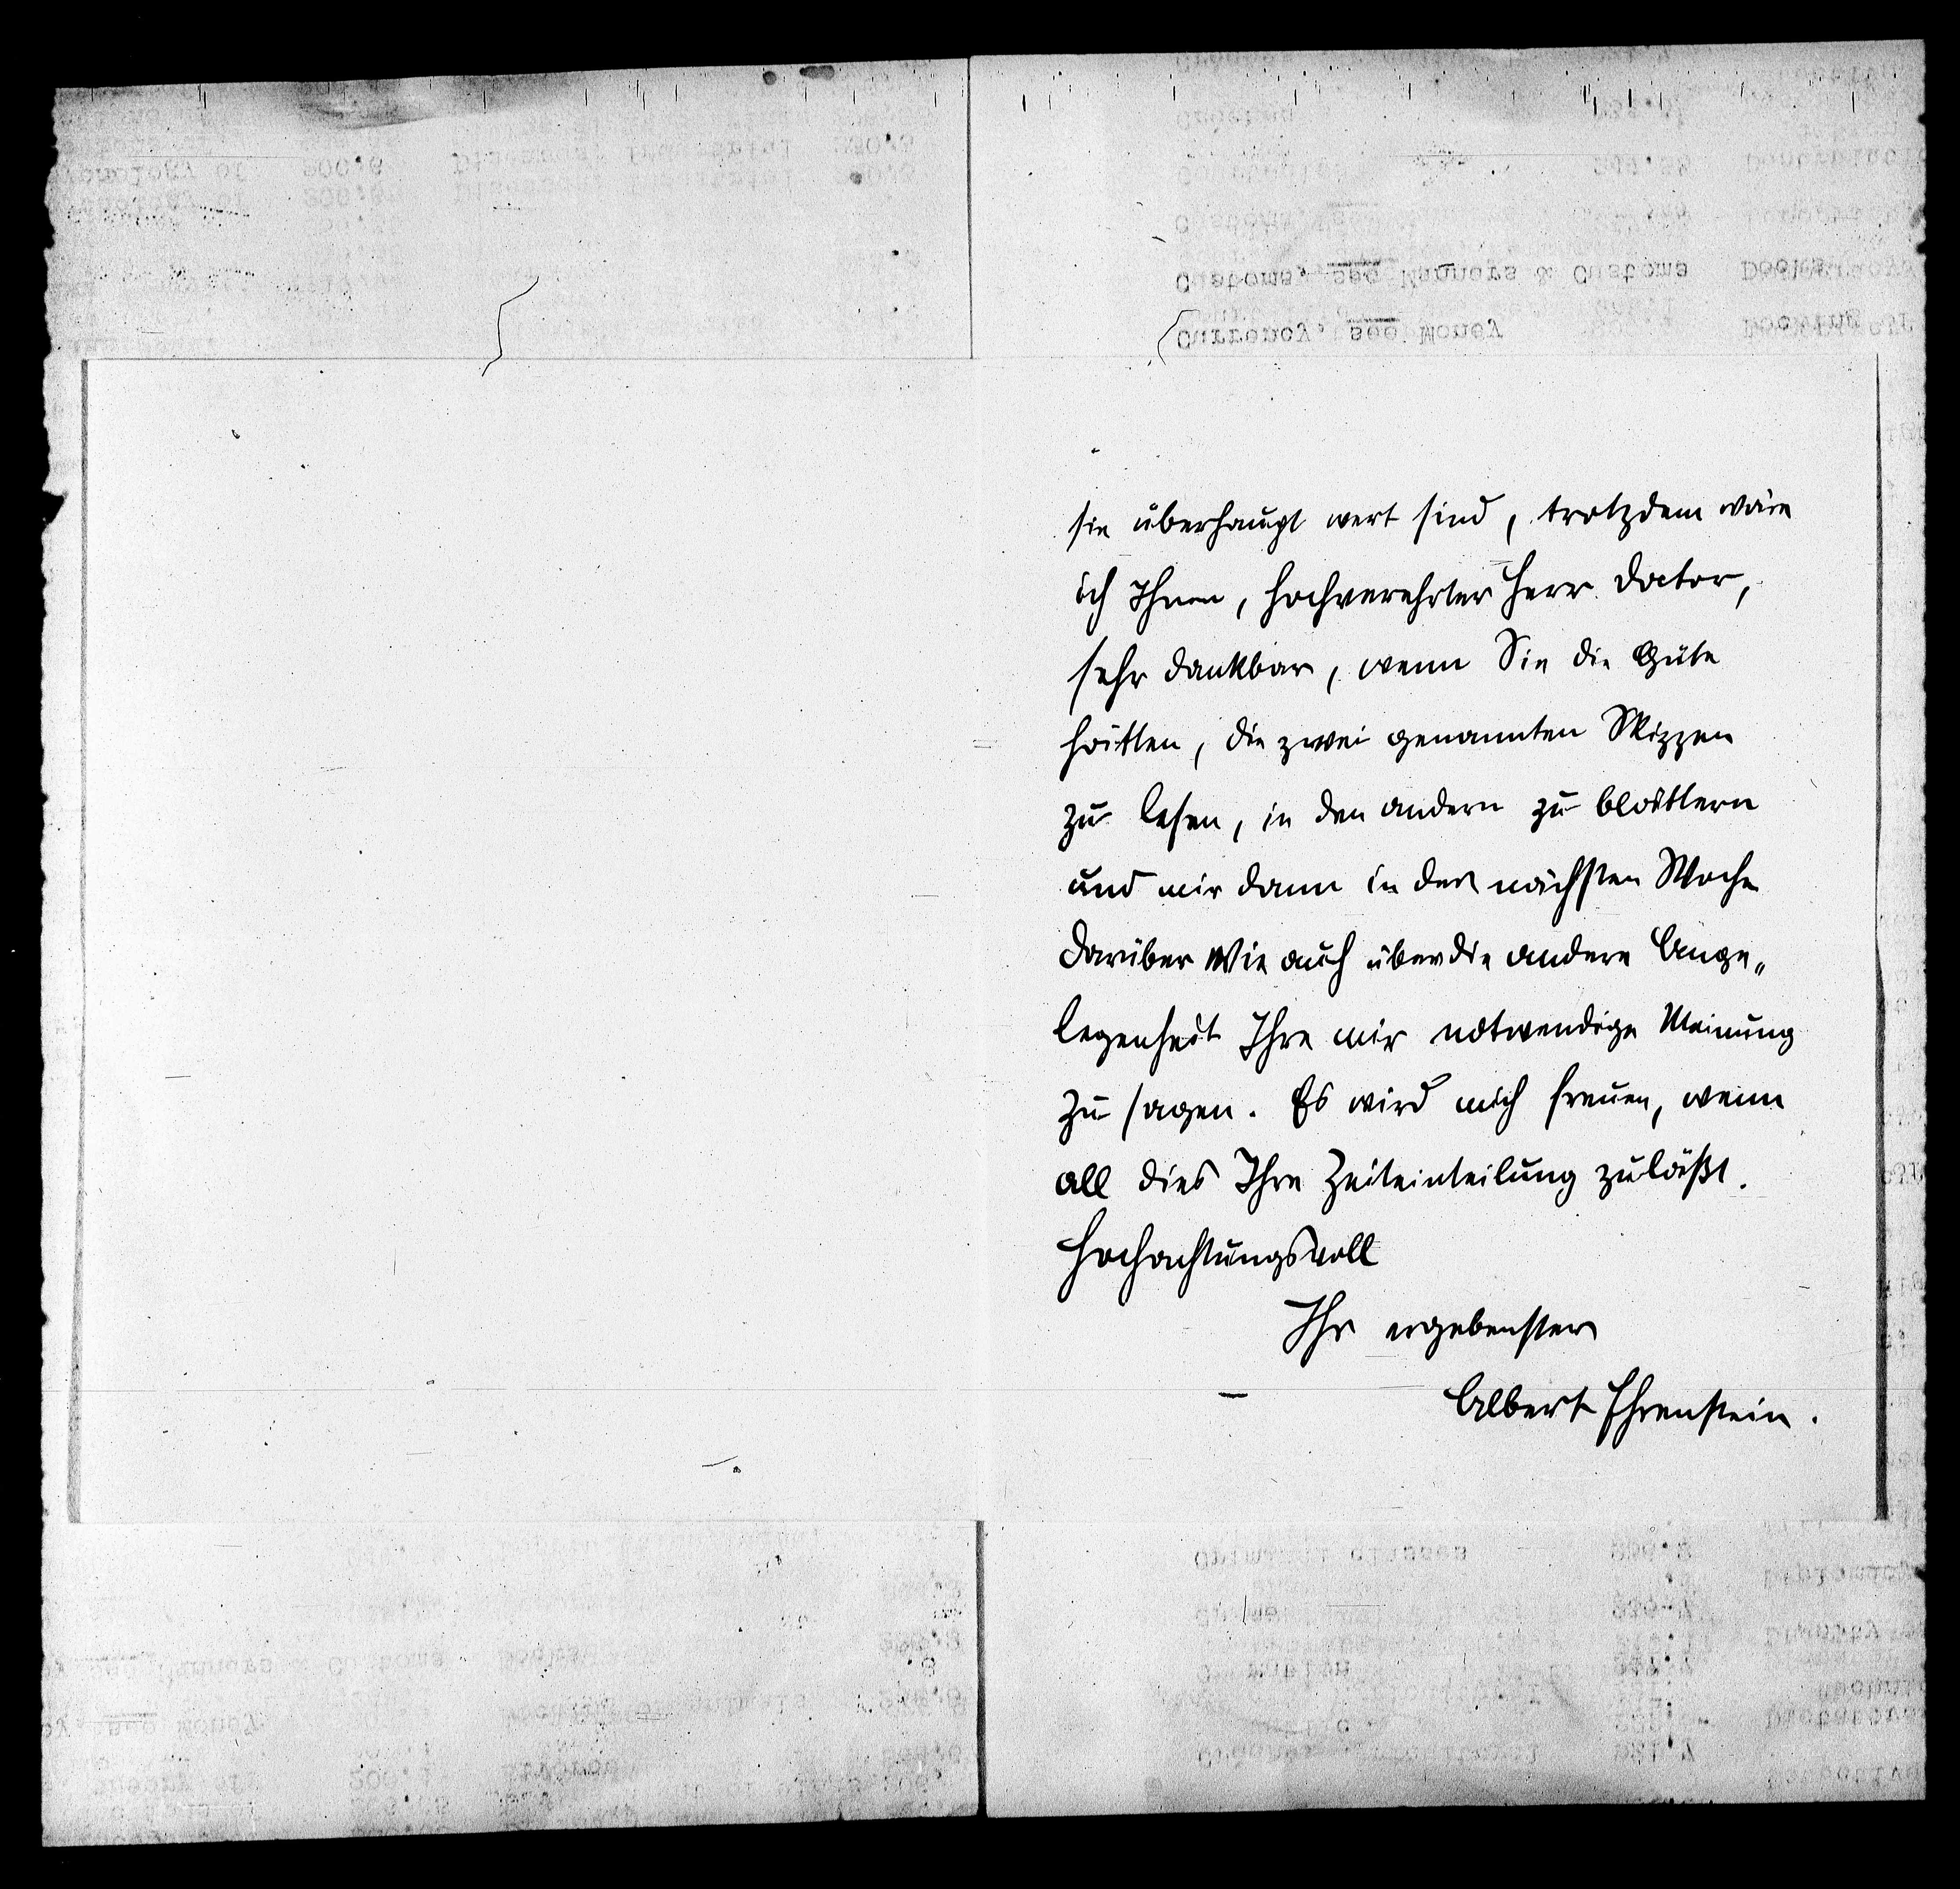 sie überhaupt wert sind, trotzdem wäre
ich Ihnen, hochverehrter Herr Doctor,
sehr dankbar, wenn Sie die Güte
hätten, die zwei genannten Skizzen
zu lesen, in den andern zu blättern
und mir dann in der nächsten Woche
darüber wie auch über die andere Ange„
legenheit Ihre mir notwendige Meinung
zu sagen. Es wird mich freuen, wenn
all dies Ihre Zeiteinteilung zuläßt.
Hochachtungsvoll
Ihr ergebenster
Albert Ehrenstein.